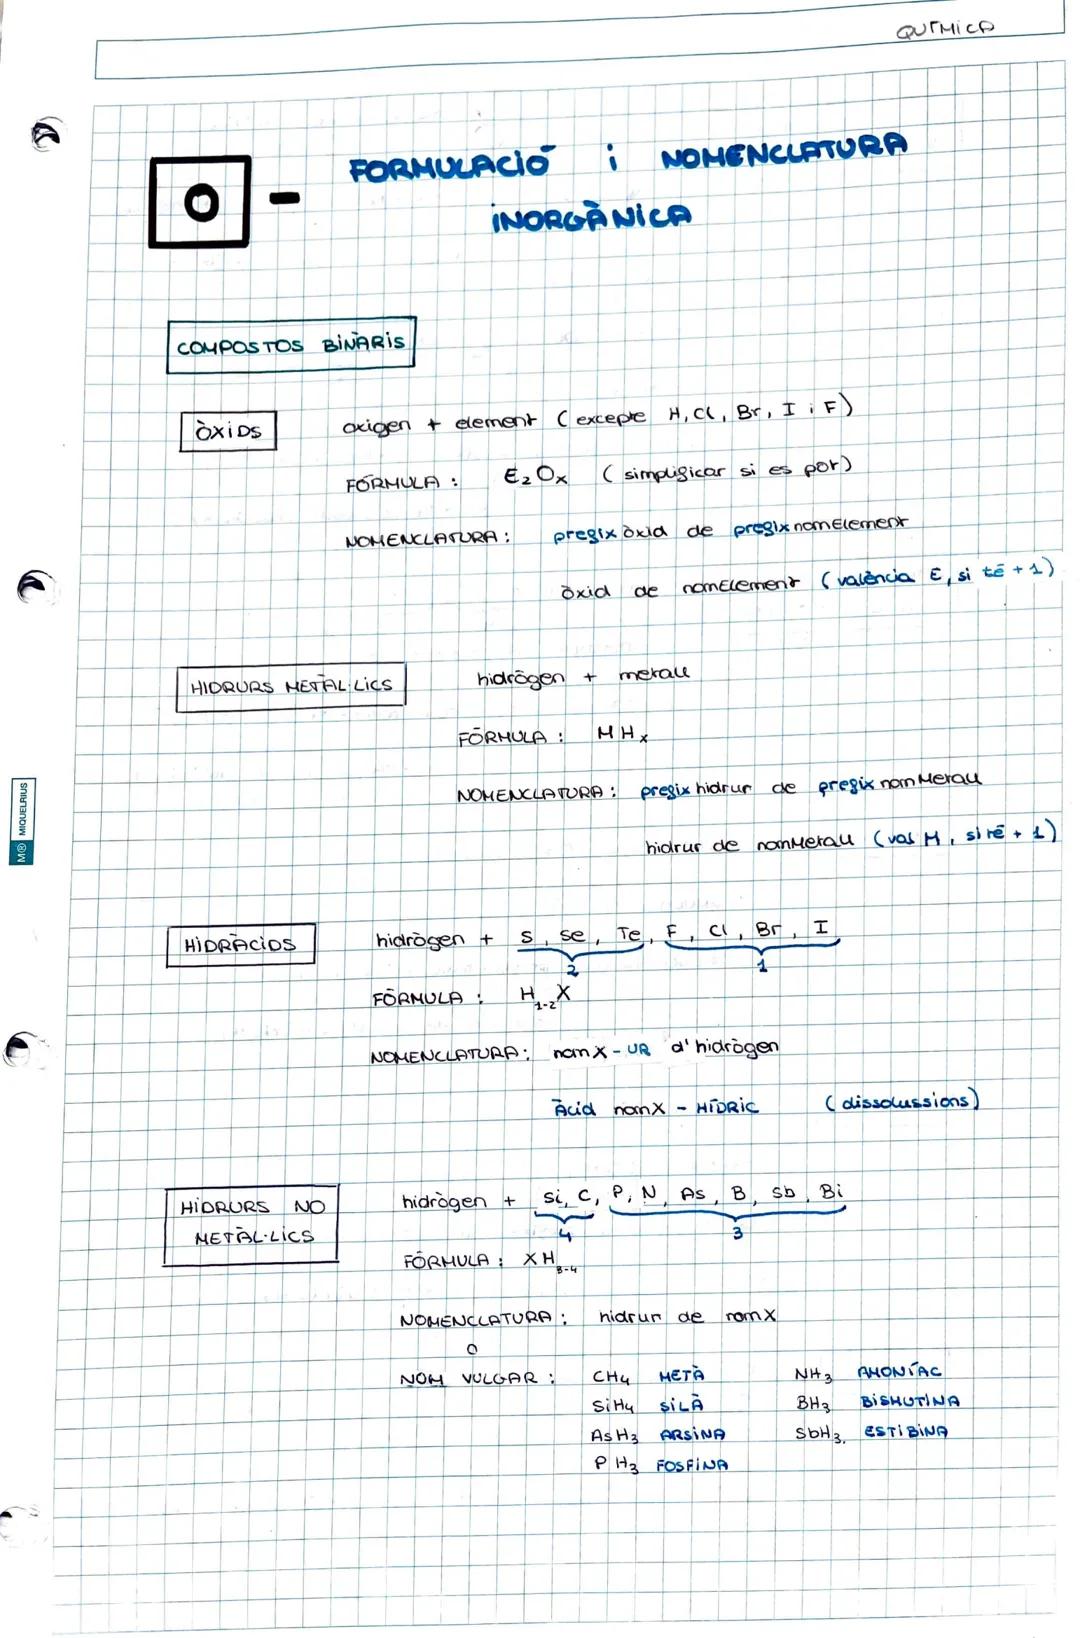 QUÍMICA
0 - FORMULACIÓ i NOMENCLATURA
INORGÀNICA
COMPOSTOS BINÀRIS
ÒXIDS
oxigen + element (excepte H, Cl, Br, I i F)
FÓRMULA : E₂Oₓ (simplificar si es pot)
NOMENCLATURA : prefix òxid de prefix nomElement
òxid de nomElement (valència E, si té + 1)
HIDRURS METÀL·LICS
hidrògen + metall
FÓRMULA : MHₓ
NOMENCLATURA : prefix hidrur de prefix nomMetall
hidrur de nomMetall (val M, si té + 1)
HIDRÀCIDS
hidrògen + S, Se, Te, F, Cl, Br, I
2 1
FÓRMULA : H₁₋₂X
NOMENCLATURA : nom X - UR d'hidrògen
Àcid nomX - HÍDRIC (dissolussions)
HIDRURS NO
METÀL·LICS
hidrògen + Si, C, P, N, As, B, Sb, Bi
4 3
FÓRMULA : XH₃₋₄
NOMENCLATURA : hidrur de nomX
O
NOM VULGAR : CH₄ METÀ NH₃ AMONÍAC
SiH₄ SILÀ BH₃ BISMUTINA
AsH₃ ARSINA SbH₃. ESTIBINA
PH₃ FOSFINA
M® MIQUELRIUS